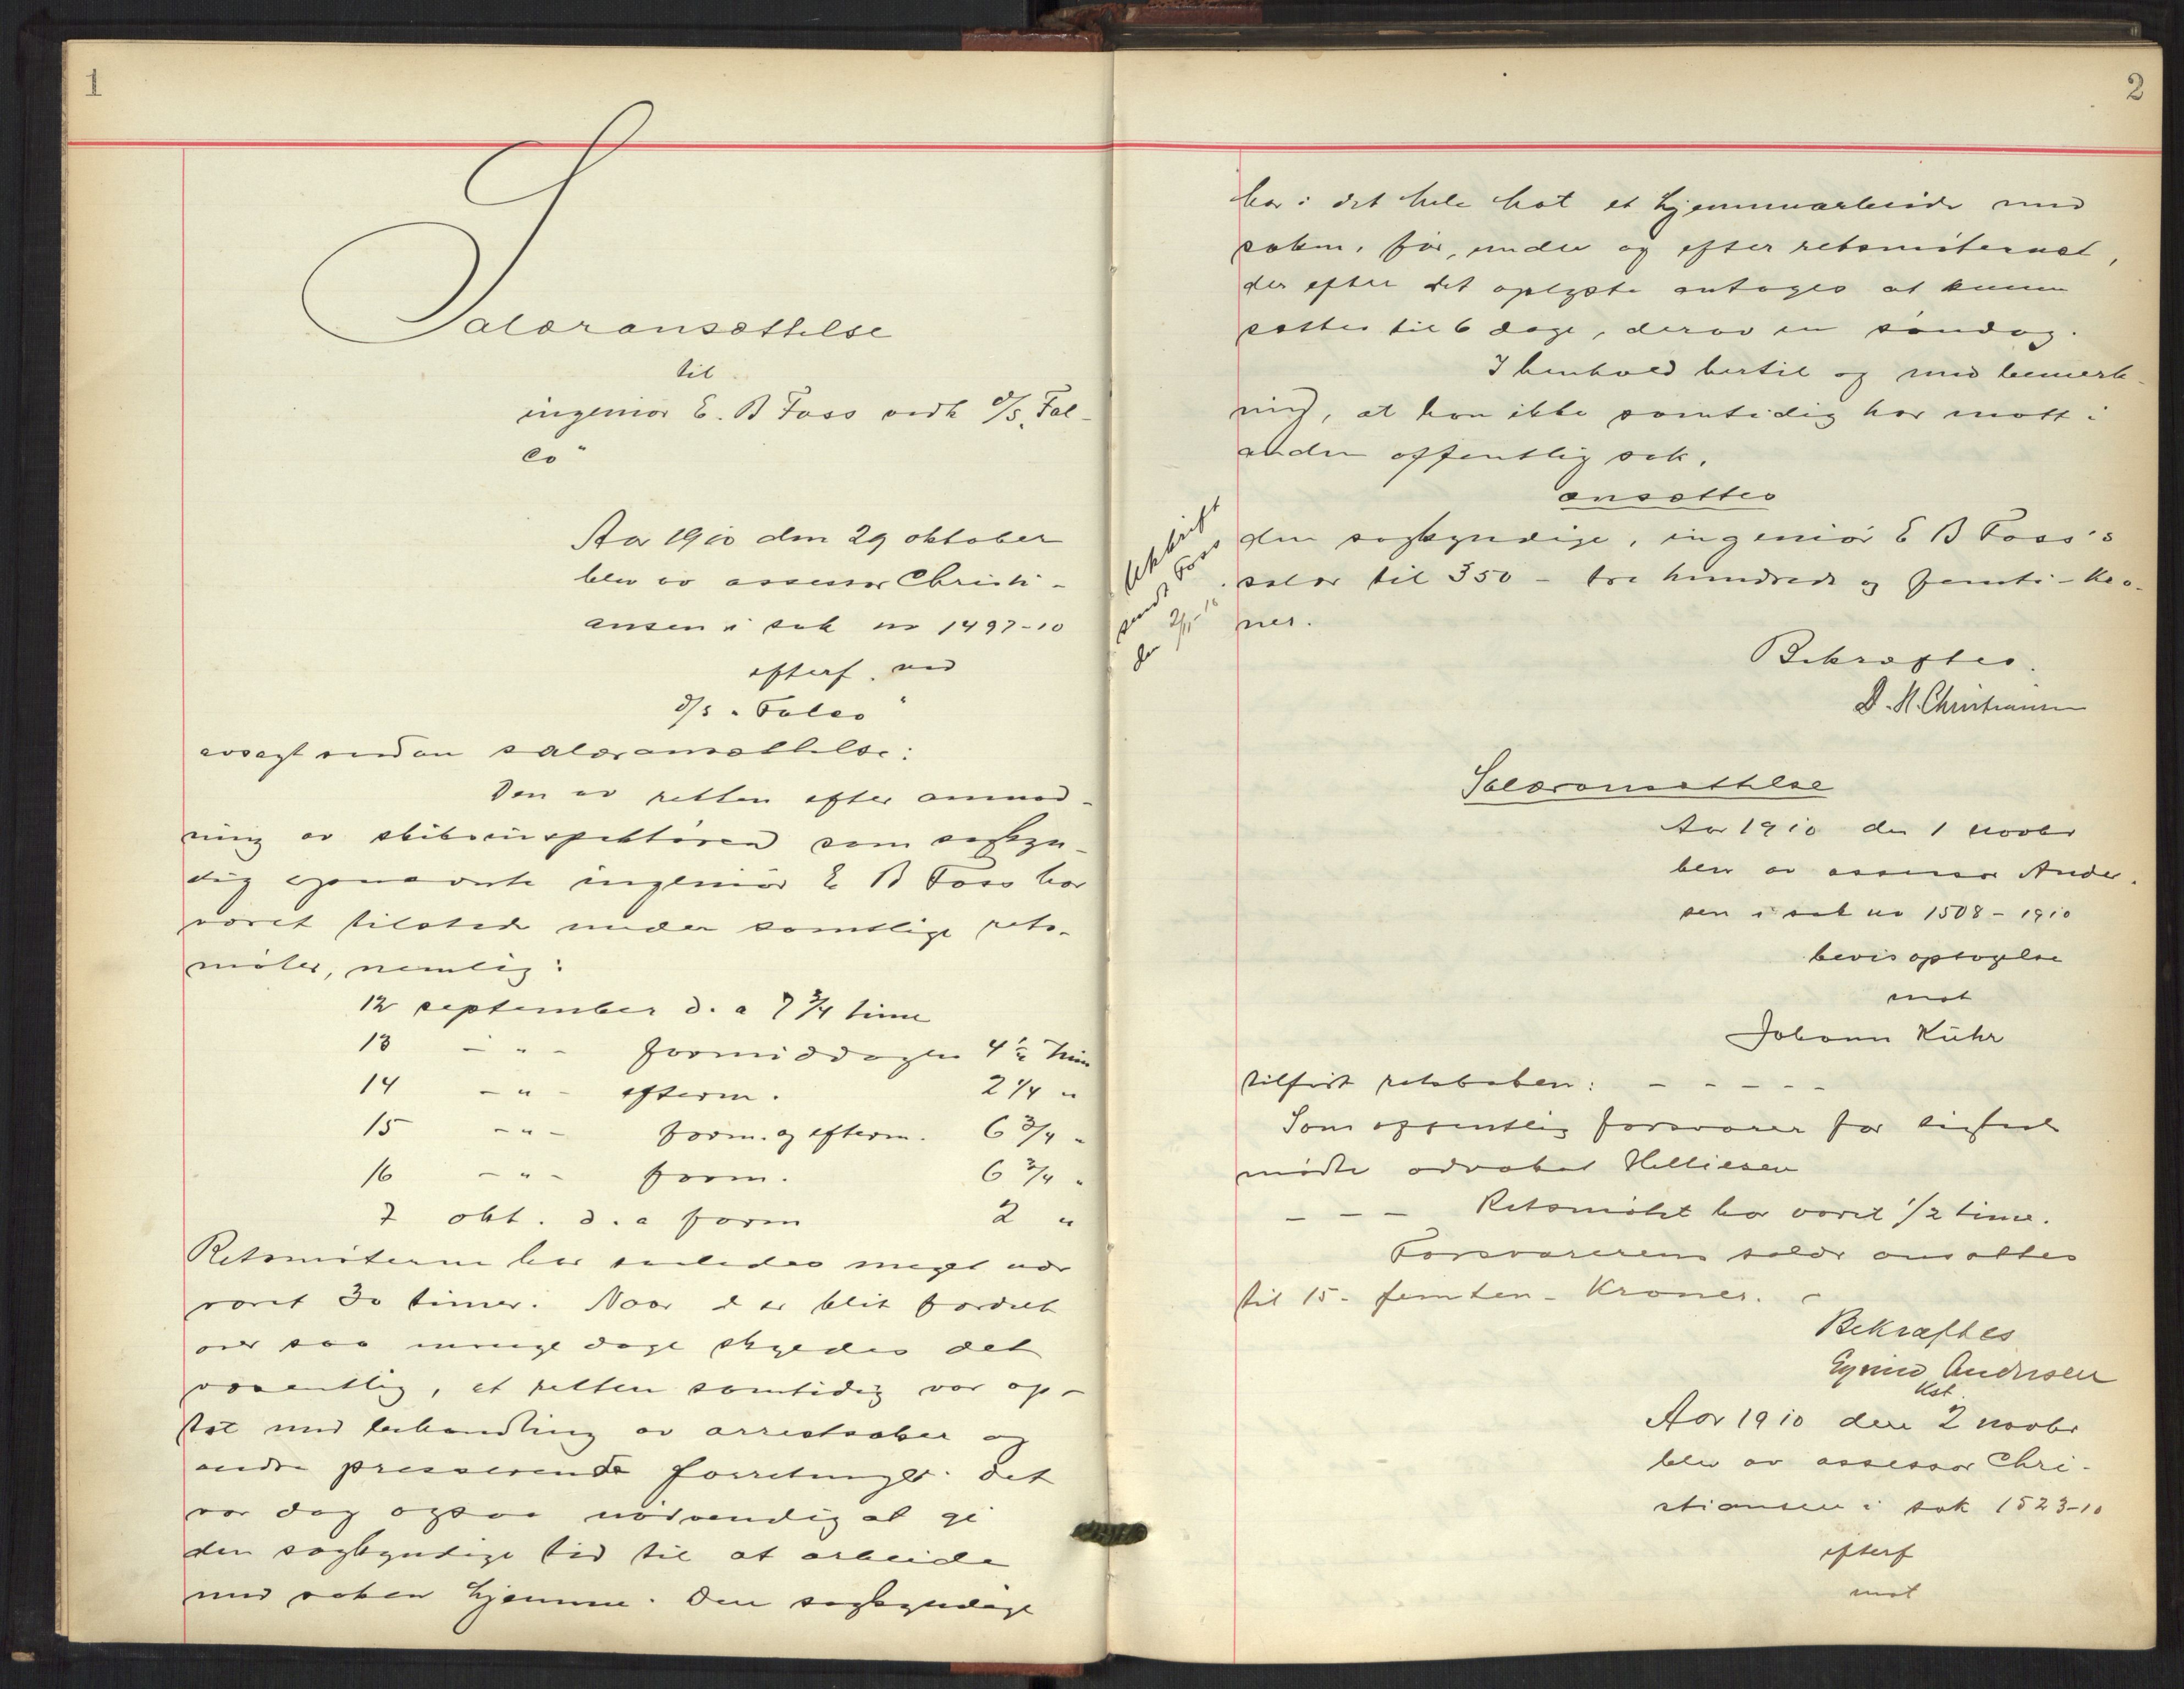 1
Salæransættelse
til
ingeniør E. B Foss vedk D/S „Fal-
co"
Aar 1910 den 29 oktober
blev av assessor Christi-
ansen i sak nr 1497-10
efterf. ved
D/S „Falco"
avsagt sådan salæransættelse:
Den av retten efter anmod-
ning av skibsinspektøren som sagkyn-
dig opnævnte ingeniør E B Foss har
været tilstede under samtlige rets-
møter, nemlig:
12 september d. a 7 3/4 time
13 - " - formiddagen 4 1/2 time
14 - " - efterm. 2 1/4 "
15 - " - form. og efterm. 6 3/4 "
16 - " - form. 6 3/4 "
7 okt. d. a form 2 "
Retsmøterne har saaledes meget nær
varet 30 timer. Naar d er blit fordelt
over saa mange dage skyldes det
væsentlig, at retten samtidig var op-
tat med behandling av arrestsaker og
andre presserende forretninger. Det
var dog ogsaa nødvendig at gi
den sagkyndige tid til at arbeide
med saken hjemme. Den sagkyndige
2
har i det hele hat et hjemmearbeide med
saken, før, under og efter retsmøterne,
der efter det oplyste antages at kunne
sættes til 6 dage, derav en søndag.
I henhold hertil og med bemerk-
ning, at han ikke samtidig har møtt i
anden offentlig sak,
ansættes
den sagkyndige, ingeniør E B Foss's
salær til 350 - tre hundrede og femti - kro-
ner.
Utskrift
sendt Foss
den 2/11-10
Bekræftes.
D. H. Christiansen
Salæransættelse
Aar 1910 den 1 novbr
blev av assessor Ander-
sen i sak no 1508 - 1910
bevisoptagelse
mot
Johann Kühr
tilført retsboken: - - - - -
Som offentlig forsvarer for sigtede
mødte advokat Helliesen
- - - Retsmøtet har varet 1/2 time.
Forsvarerens salær ansættes
til 15 - femten - Kroner. -
Bekræftes
Eyvind Andersen
Kst.
Aar 1910 den 2 novbr
blev av assessor Chri-
stiansen i sak 1523-10
efterf
mot